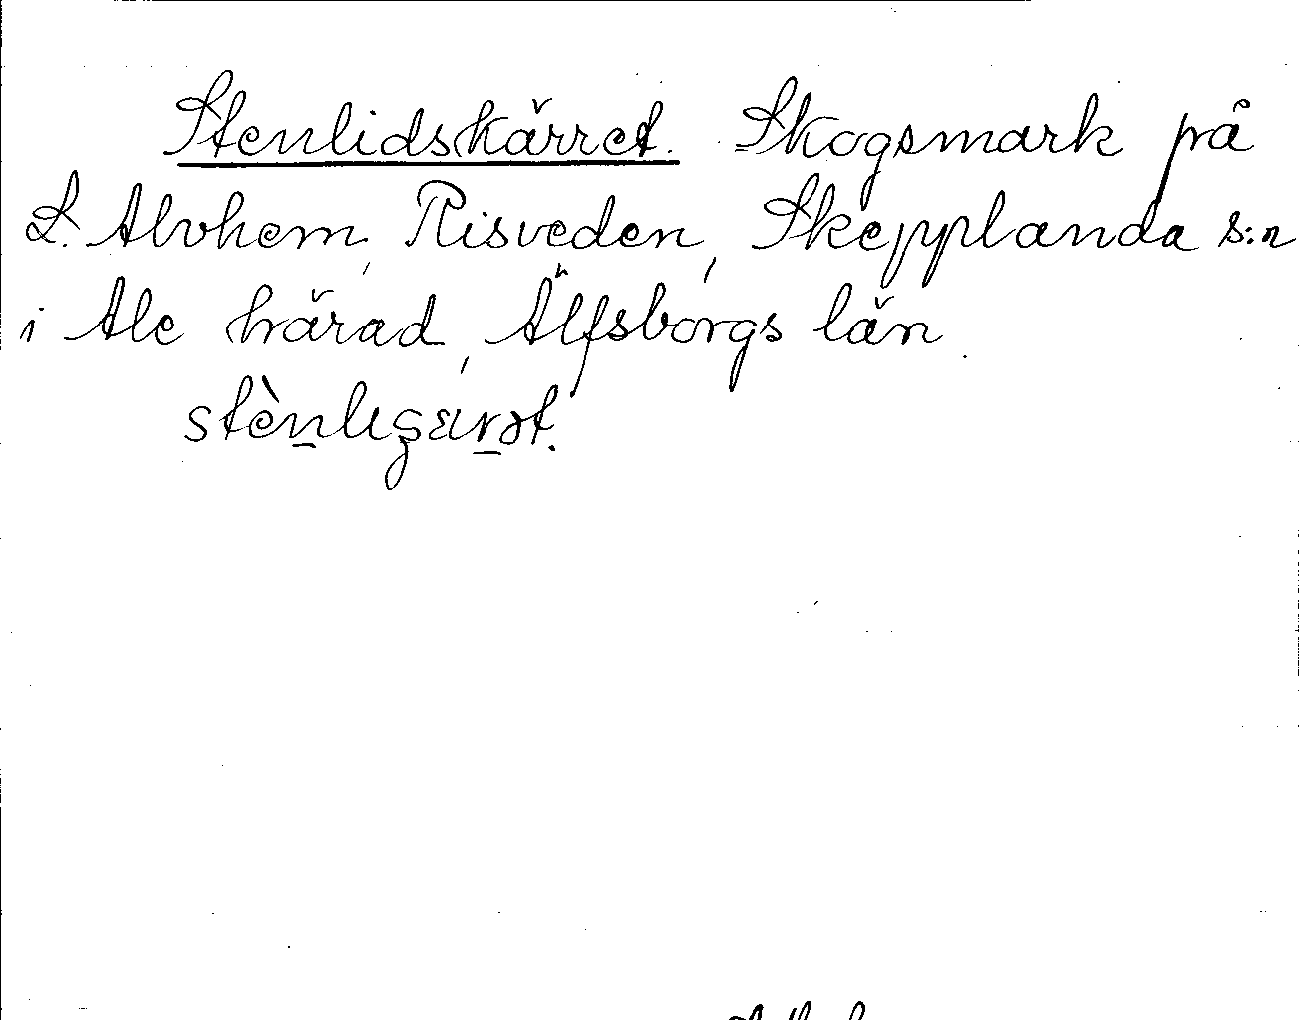 Stenlidskärret. Skogsmark på
L. Alvhem, Risveden, Skepplanda s:n
i Ale härad, Älfsborgs län.